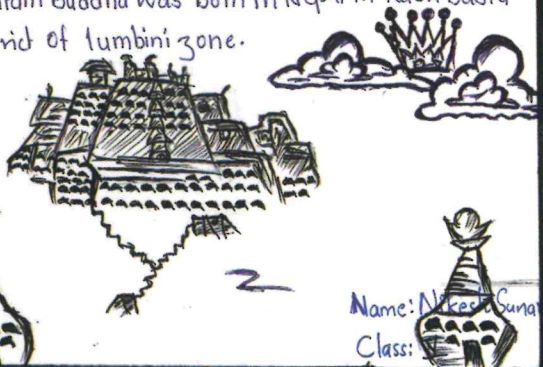 Buddha was born in Nepal in
rict of lumbini zone.
Name: Nikesh Sunar
Class: